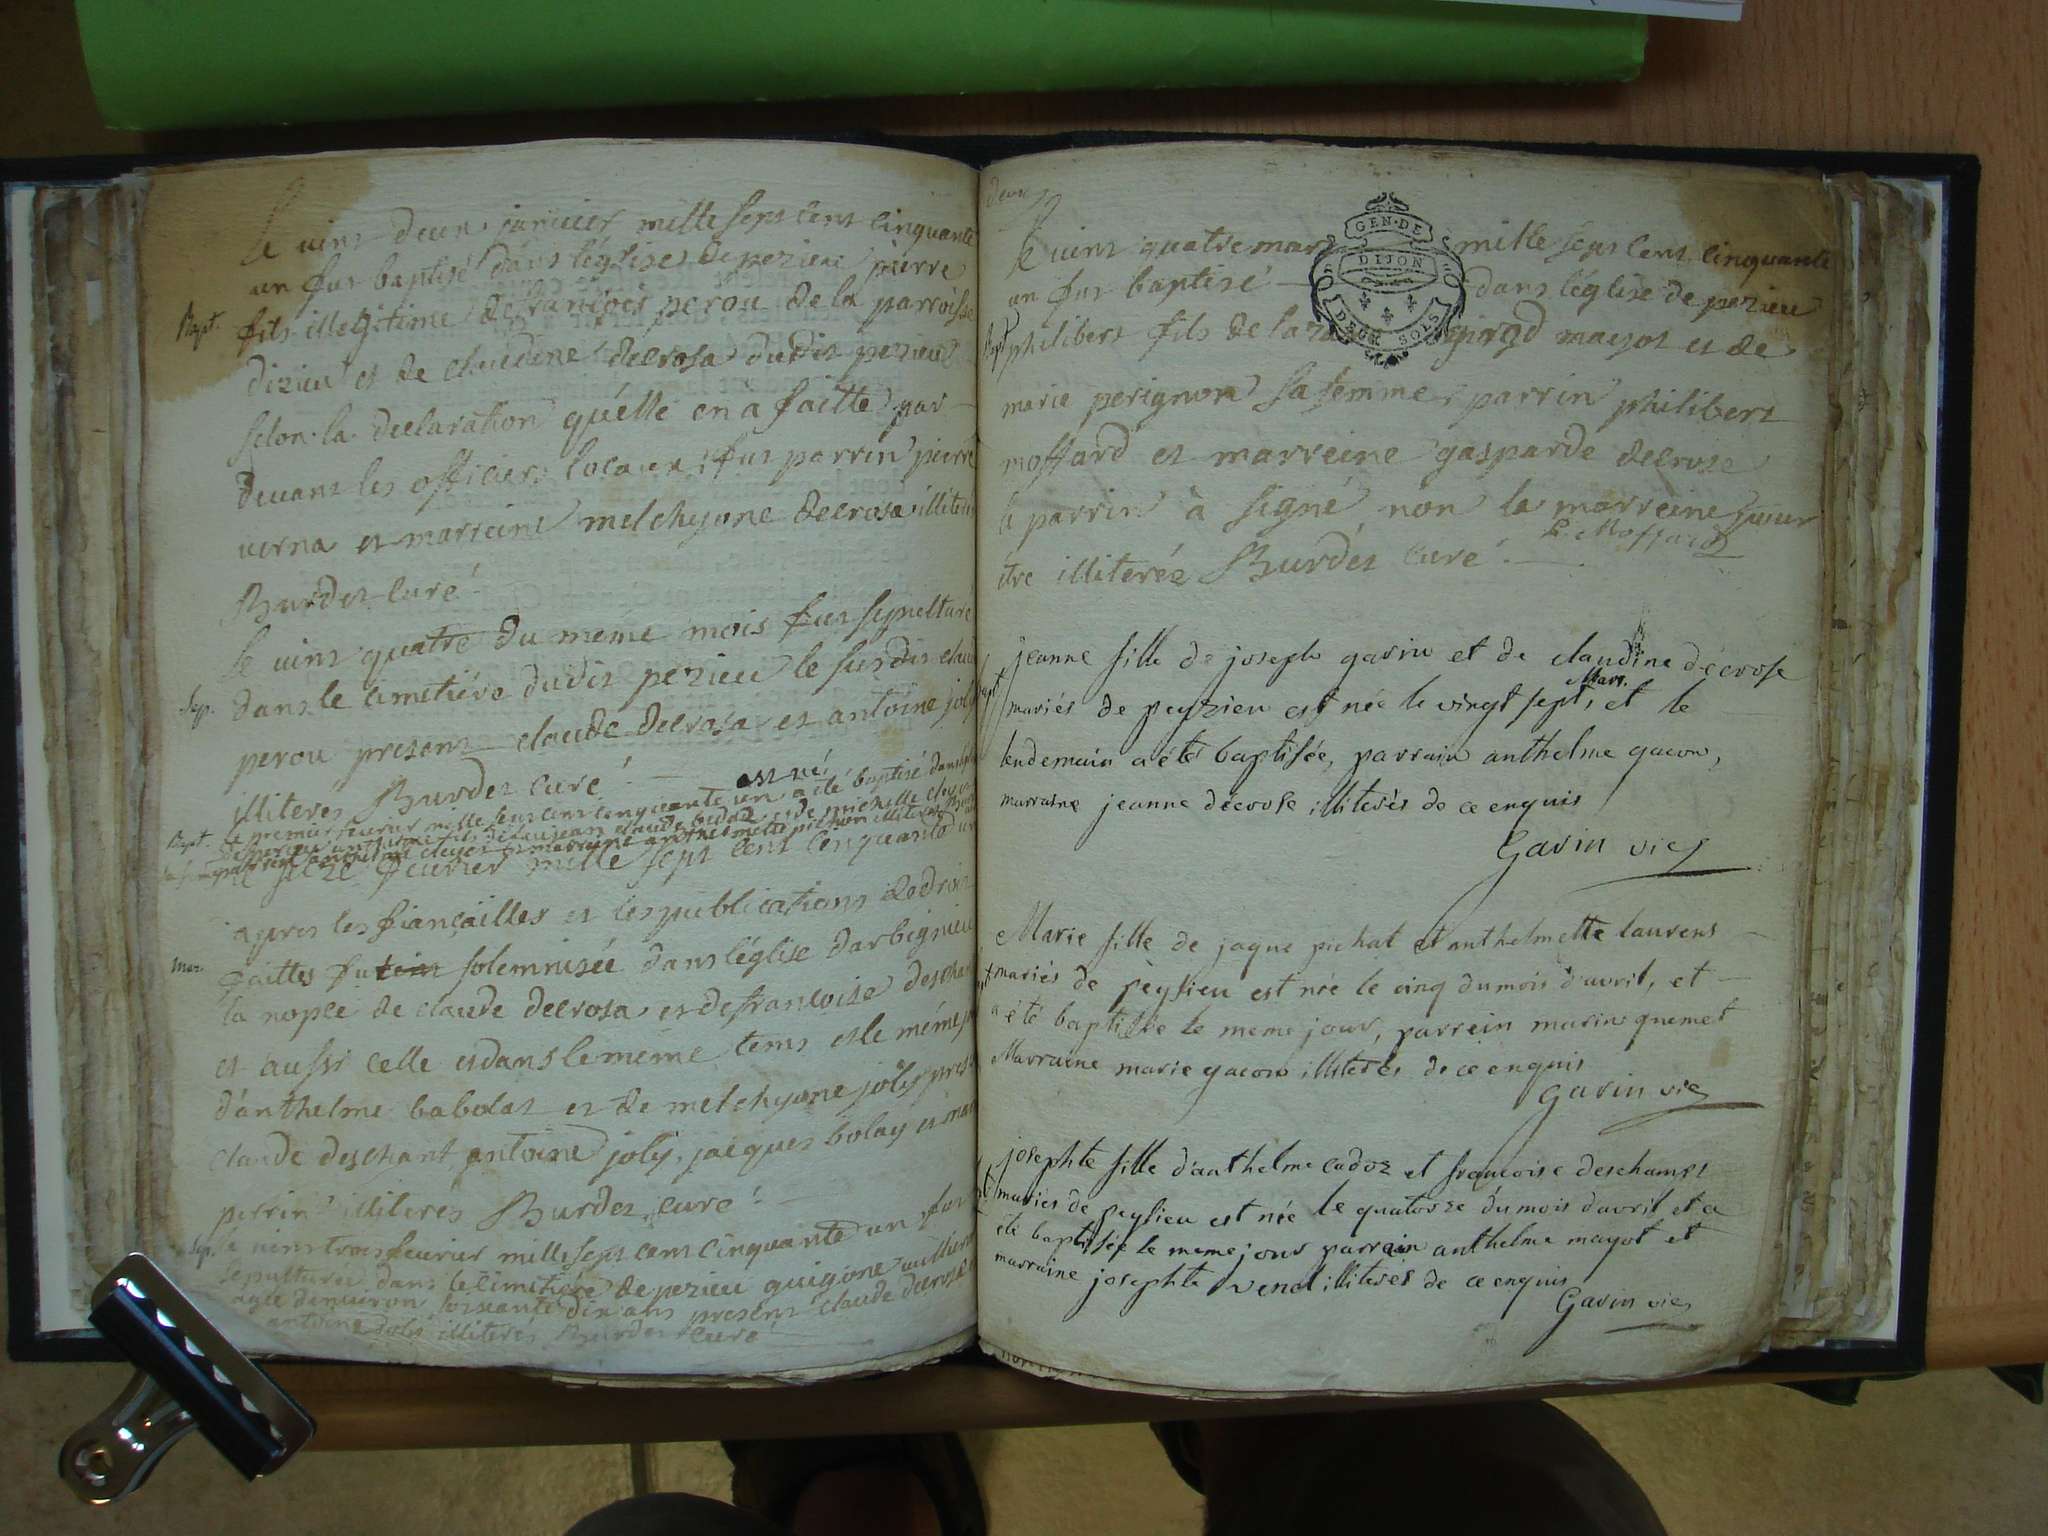 Le vint deux janvier mille sept cent cinquante
un fut baptisé dans l'église de pezieu pierre
Bapt. fils illegitime de francois perou de la parroisse
dizieu et de claudine decrosa dudit pezieu
selon la declaration qu'elle en a faitte par
devant les officiers locaux; fut parrin pierre
verna et marreine melchyone decrosa illiteres
Burdet curé
Le vint quatre du meme mois fut sepulturé
Sep. dans le cimetiére dudit pezieu le susdit
perou present claude decrosa et antoine joly
illiterés Burdet curé
est né
Bapt. Le premier fevrier mille sept cent cinquante un a été baptisé dans
Le seize fevrier mille sept cent cinquante un
apres les fiançailles et les publications de droit
mar. faittes fut solemnisée dans l'église d'arbignieu
la nopce de claude decrosa et de francoise deschant
et aussi celle et dans le méme tems et le méme
d'anthelme babolat et de melchyone joly
claude deschant, antoine joly, jacques bolay et
perrin illiterés Burdet curé
Sep. le vint trois fevrier mille sept cent cinquante un fut
sepulturée dans le cimetiére de pezieu guigone
agée d'environ soissante dix ans present claude decrosa
antoine joly illiterés Burdet curé
deux
Le vint quatre mars mille sept cent cinquante
GEN·DE
DIJON
DEUX SOLS
un fut baptisé dans l'église de pezieu
Bapt philibert fils de girod mayot et de
marie perignon sa femme, parrin philibert
moffard et marreine gasparde decrose
le parrin à signé non la marreine pour
P. Moffard
être illiterée Burdet curé
jeanne fille de joseph gavin et de claudine décrose
Mars.
Bapt mariés de peyzieu est née le vingt sept, et le
lendemain a été baptisée, parrain anthelme gacon,
marraine jeanne décrose illiterés de ce enquis
Gavin vic
Marie fille de jaque pichat et anthelmette laurens
mariés de peysieu est née le cinq du mois d'avril, et
a été baptisée le meme jour, parrein marin quemet
Marraine marie gacon illiterés de ce enquis
Gavin vic
josephte fille d'anthelme cadoz et francoise deschamps
mariés de peysieu est née le quatorze du mois d'avril et a
été baptisée le meme jour parrain anthelme mayot et
marraine josephte venet illiterés de ce enquis
Gavin vic